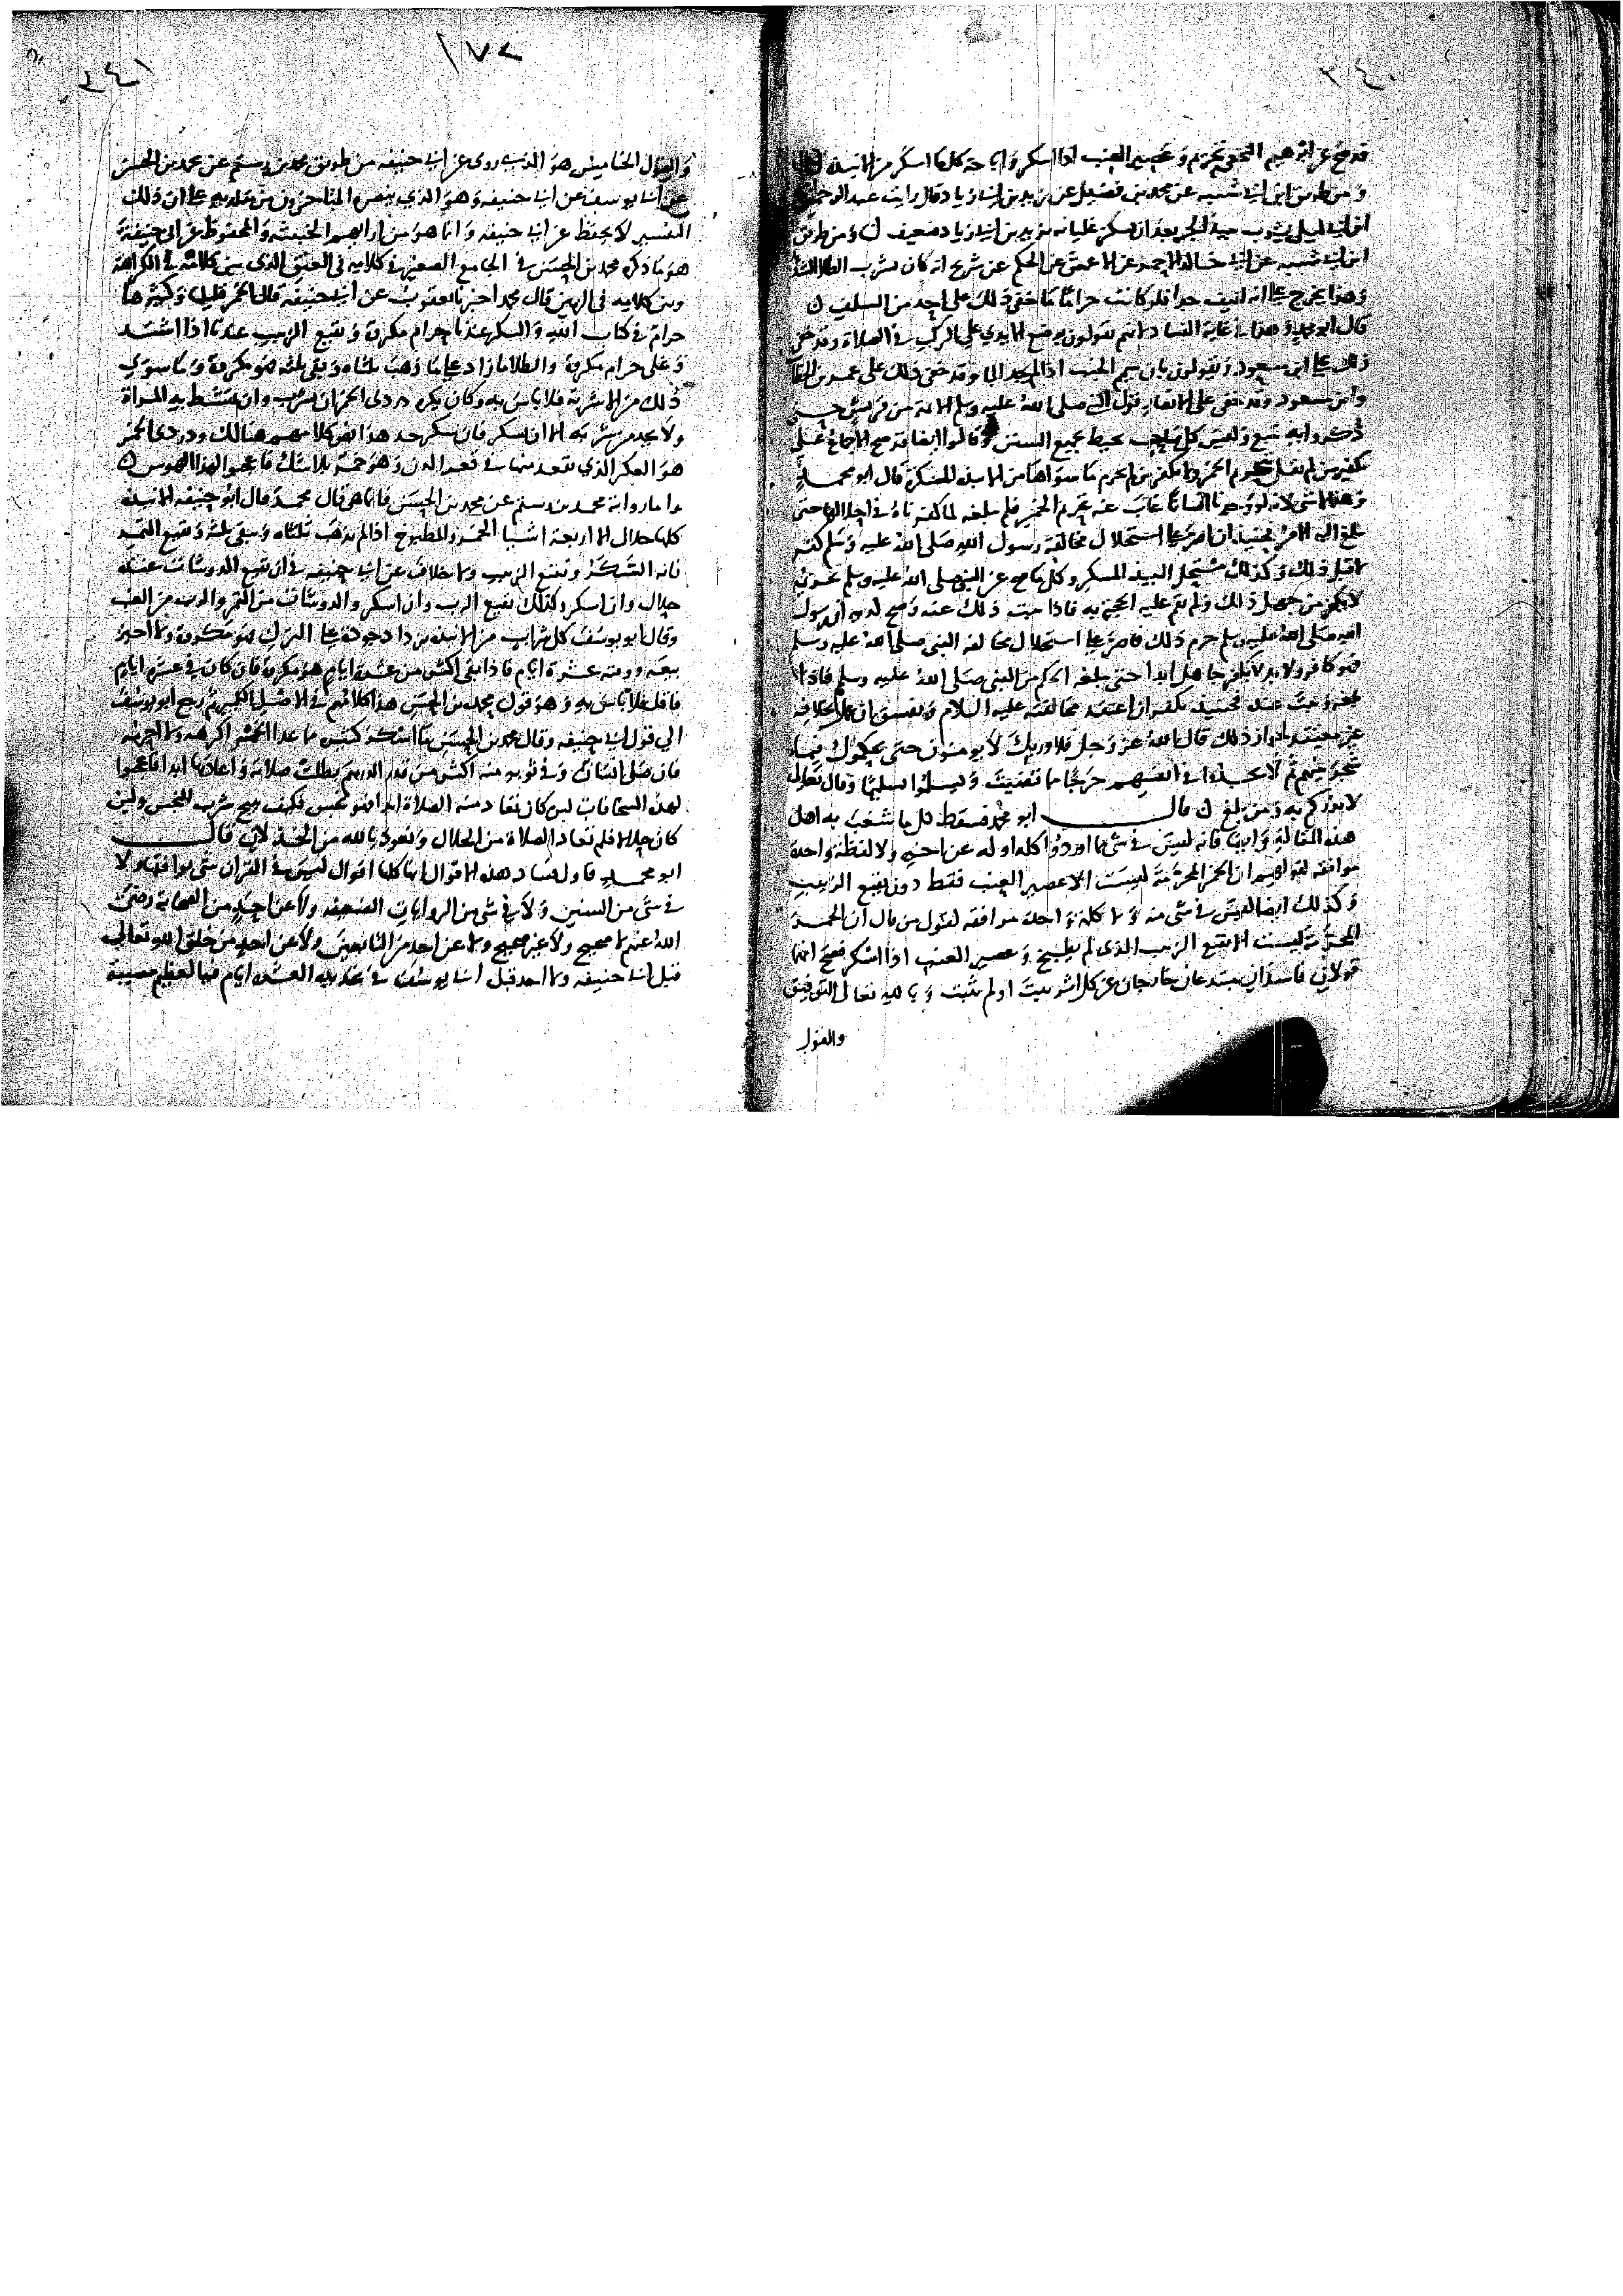 ٢٤٠
قد صح عن ابرهيم النخعي تحريم عصير العنب اذا اسكر واباحة كل ما اسكر من الانبذة
ومن طريق ابن ابي شيبة عن محمد بن فضيل عن يزيد بن ابي زياد قال رايت عبد الرحمن
ابن ابي ليلى يشرب نبيذ الجر بعد ان سكن غليانه يزيد بن ابي زياد ضعيف ومن طريق
ابن ابي شيبة عن ابي خالد الاحمر عن الاعمش عن الحكم عن شريح انه كان يشرب الطلا
وهذا يخرج على انه ليس خمرا فلو كانت حراما ما خفي ذلك على احد من السلف
قال ابو محمد وهذا في غاية الفساد انهم يقولون بوضع الايدي على الركب في الصلاة وقد خفي
ذلك على ابن مسعود ويقولون بان تيمم الجنب اذا لم يجد الما وقد خفي ذلك على عمر بن الخطاب
وابن مسعود وقد خفي على الانصار قول النبي صلى الله عليه وسلم الائمة من قريش حتى
ذكروا به تبع وليس كل صاحب يحيط بجميع السنن وقالوا ايضا قد صح الاجماع على
تكفير من لم يقل بتحريم الخمر ولا يكفر من لم يحرم ما سواها من الانبذة المسكرة قال ابو محمد
وهذا لا شي لانه لو وجدنا انسانا غاب عنه تحريم الخمر فلم يبلغه لما كفرناه في احلالها حتى
يبلغ اليه الامر فحينئذ ان اصر على استحلال مخالفة رسول الله صلى الله عليه وسلم كفر
لا قبل ذلك وكذلك مستحل النبيذ المسكر وكل ما صح عن النبي صلى الله عليه وسلم تحريمه
لا يكفر من جهل ذلك ولم تقم عليه الحجة به فاذا ثبت ذلك عنده وصح لديه ان رسول
الله صلى الله عليه وسلم حرم ذلك فاصر على استحلال مخالفة النبي صلى الله عليه وسلم
فهو كافر ولا بد ولا يكفر جاهل ابدا حتى يبلغه الحكم من النبي صلى الله عليه وسلم فاذا
بلغه وثبت عنده فحينئذ يكفر ان اعتقد مخالفته عليه السلام ويفسق ان عمل بخلافه
غير معتقد لجواز ذلك قال الله عز وجل فلا وربك لا يومنون حتى يحكموك فيما
شجر بينهم ثم لا يجدوا في انفسهم حرجا مما قضيت ويسلموا تسليما وقال تعالى
لانذركم به ومن بلغ قال ابو محمد فسقط كل ما شغب به اهل
هذه المقالة وايضا فانه ليس في شي مما اوردوا كله اوله عن اخره ولا لفظة واحدة
موافقة لقولهم ان الخمر المحرمة ليست الا عصير العنب فقط دون نقيع الزبيب
وكذلك ايضا ليس في شي منه ولا كلمة واحدة موافقة لقول من قال ان الخمر
المحرمة ليست الا نقيع الزبيب الذي لم يطبخ وعصير العنب اذا اسكر فصح انهما
قولان فاسدان مبتدعان خارجان عن كل اثر ثبت او لم يثبت وبالله تعالى التوفيق
والقول
١٧٢
٢٤١
والقول الخامس هو الذي روى عن ابي حنيفة من طريق محمد بن رستم عن محمد بن الحسن
عن ابي يوسف عن ابي حنيفة وهو الذي ينصر المتاخرون من مقلديه على ان ذلك
التفسير لا يحفظ عن ابي حنيفة وانما هو من ارا محمد بن الحسن والمحفوظ عن ابي حنيفة
هو ما ذكره محمد بن الحسن في الجامع الصغير في كلامه في العتق الذي بين كلامه في الكراهة
وبين كلامه في الرهن قال محمد اخبرنا يعقوب عن ابي حنيفة قال الخمر قليلها وكثيرها
حرام في كتاب الله والسكر عندنا حرام مكروه ونقيع الزبيب عندنا اذا اشتد
وغلى حرام مكروه والطلا ما زاد على ما ذهب ثلثاه وبقي ثلثه فهو مكروه وما سوى
ذلك من الاشربة فلا باس به وكان يكره دردي الخمر ان يشرب وان تمتشط به المراة
ولا يحد من شربه الا ان سكر فان سكر حد هذا نص كلامهم هنالك ودردي الخمر
هو العكر الذي يقعد منها في قعر الدن وهو خمر بلا شك فاعجبوا لهذا الهوس
واما رواية محمد بن رستم عن محمد بن الحسن فانما هي قال محمد قال ابو حنيفة الانبذة
كلها حلال الا اربعة اشيا الخمر والمطبوخ اذا لم يذهب ثلثاه ويبقى ثلثه ونقيع التمر
فانه السكر ونقيع الزبيب ولا خلاف عن ابي حنيفة في ان نقيع الدوشات عنده
حلال وان اسكر وكذلك نقيع الرب وان اسكر والدوشات من التمر والرب من العنب
وقال ابو يوسف كل شراب من الانبذة يزداد جودة على الترك فهو مكروه ولا اجيز
بيعه ووقته عشرة ايام فاذا بقي اكثر من عشرة ايام فهو مكروه فان كان في عشرة ايام
فاقل فلا باس به وهو قول محمد بن الحسن هذا كلامهم في الاصل الكبير ثم رجع ابو يوسف
الى قول ابي حنيفة وقال محمد بن الحسن ما اسكر كثيره مما عدا الخمر اكرهه ولا احرمه
فان صلى انسان وفي ثوبه منه اكثر من قدر الدرهم بطلت صلاته واعادها ابدا فاعجبوا
لهذه السخافات لين كان تعاد منه الصلاة ابدا فهو نجس فكيف يبيح شرب النجس ولين
كان حلالا فلم تعاد الصلاة من الحلال ونعوذ بالله من الخذلان قال
ابو محمد فاول فساد هذه الاقوال انها كلها اقوال ليس في القران شي يوافقها ولا
في شي من السنن ولا في شي من الروايات الضعيفة ولا عن احد من الصحابة رضي
الله عنهم لا صحيح ولا غير صحيح ولا عن احد من التابعين ولا عن احد من خلق الله تعالى
قبل ابي حنيفة ولا احد قبل ابي يوسف في تحديده العشرة ايام فيا لعظيم مصيبة